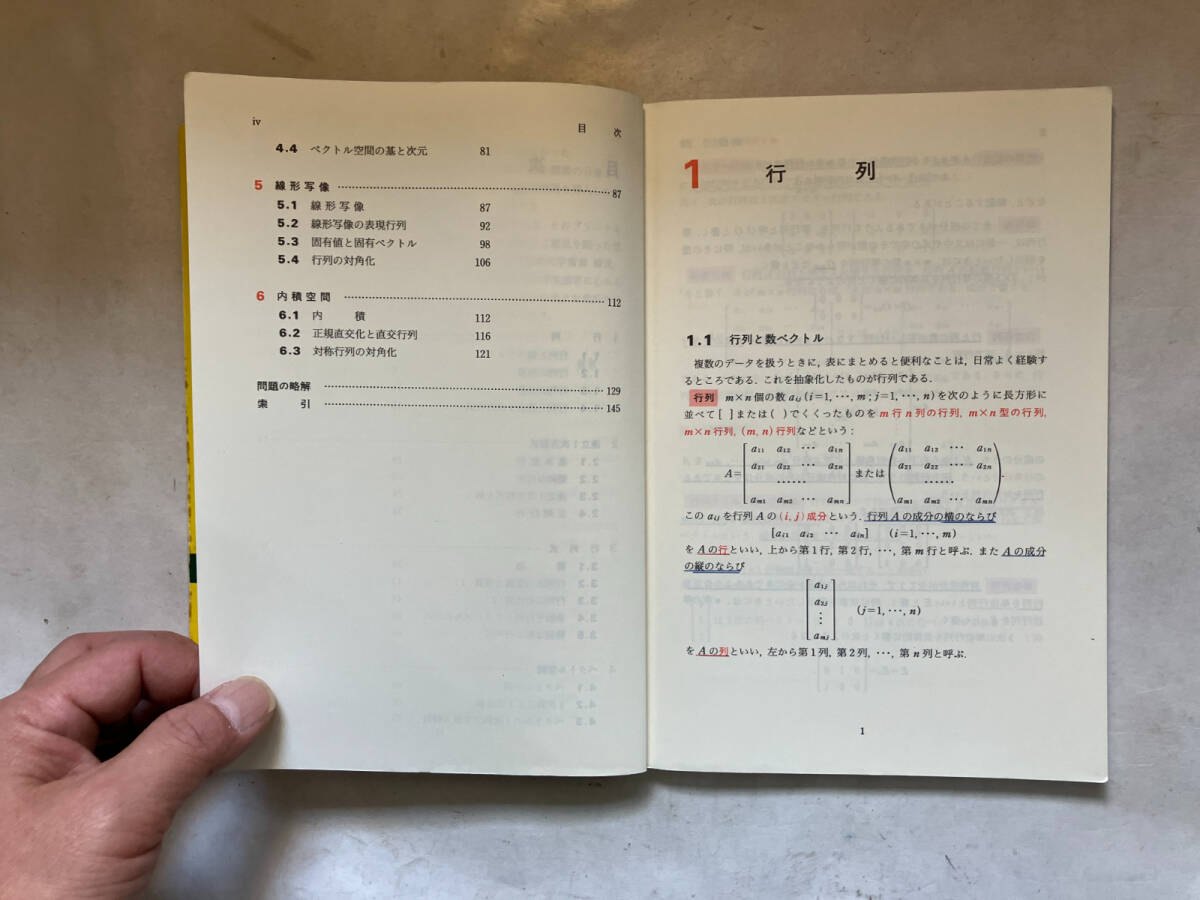 iv
目 次
4.4 ベクトル空間の基と次元 81
5 線形写像 …………………………………… 87
5.1 線形写像 87
5.2 線形写像の表現行列 92
5.3 固有値と固有ベクトル 98
5.4 行列の対角化 106
6 内積空間 …………………………………… 112
6.1 内 積 112
6.2 正規直交化と直交行列 116
6.3 対称行列の対角化 121
問題の略解 …………………………………… 129
索 引 …………………………………… 145
1 行 列
1.1 行列と数ベクトル
複数のデータを扱うときに, 表にまとめると便利なことは, 日常よく経験す
るところである. これを抽象化したものが行列である.
行列 m×n 個の数 aij (i=1, ···, m ; j=1, ···, n) を次のように長方形に
並べて [ ] または ( ) でくくったものを m 行 n 列の行列, m×n 型の行列,
m×n 行列, (m, n) 行列などという:
a11 a12 ··· a1n a11 a12 ··· a1n
a21 a22 ··· a2n a21 a22 ··· a2n
A= または .
······ ······
am1 am2 ··· amn am1 am2 ··· amn
この aij を行列 A の (i, j) 成分という. 行列 A の成分の横のならび
[ai1 ai2 ··· ain] (i=1, ···, m)
を A の行といい, 上から第 1 行, 第 2 行, ···, 第 m 行と呼ぶ. また A の成分
の縦のならび
a1j
a2j
⋮ (j=1, ···, n)
amj
を A の列といい, 左から第 1 列, 第 2 列, ···, 第 n 列と呼ぶ.
1